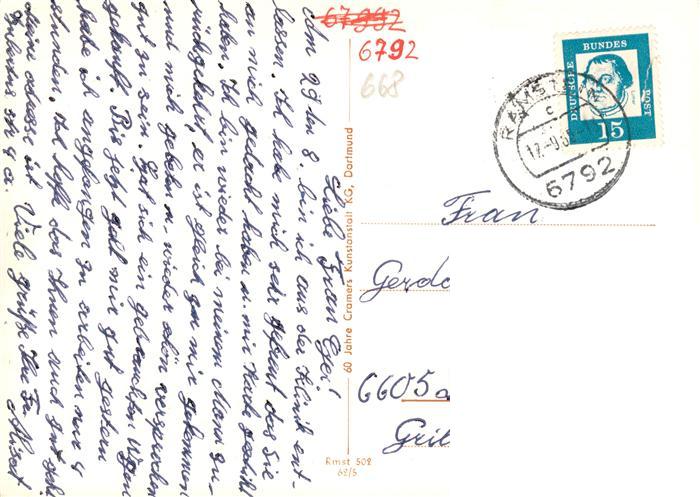 Liebe Frau Egei!
Am 29 den 8. bin ich aus der Klinik ent-
lassen. Ich habe mich sehr gefreut das Sie
an mich gedacht haben u. mir Karte geschickt
haben. Ich bin wieder bei meinem Mann zu-
rückgekehrt, er ist gleich zu mir gekommen
und mich gebeten u. wieder schön versprochen
gut zu sein. Hat sich ein gebrauchten Wagen
gekauft. Bis jetzt geht mir gut gestern
habe ich angefangen zu arbeiten nur 4
stunden. Ich hoffe das Ihnen auch gut geht
meine adresse ist
Viele grüße Ihre Fr.
60 Jahre Cramers Kunstanstalt KG, Dortmund
Rmst 502
62/5
67992
6792
668
DEUTSCHE BUNDES POST
15
RAMSTEIN
c
6792
Frau
Gerda
6605